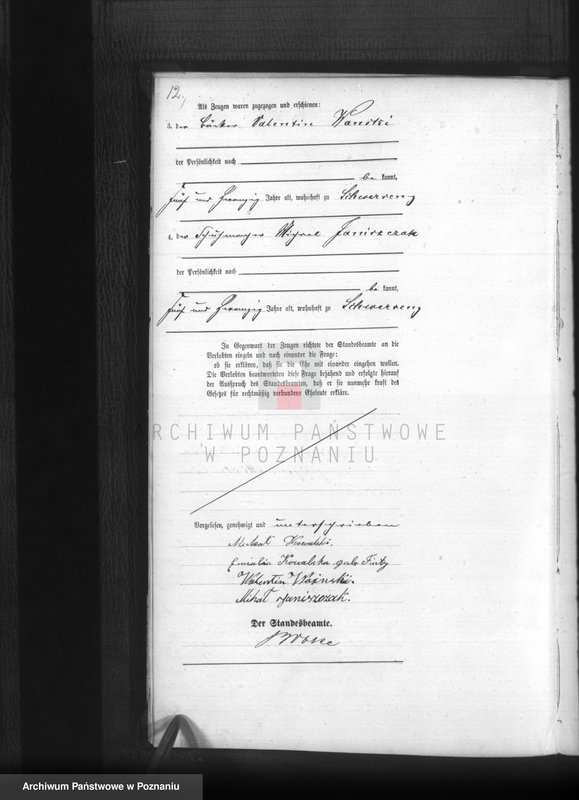 12.
Als Zeugen waren zugezogen und erschienen:
3. der Bäcker Valentin
der Persönlichkeit nach
be kannt,
fünf und zwanzig Jahre alt, wohnhaft zu Schwersenz
4. der Schuhmacher Michael Janiszczak
der Persönlichkeit nach
be kannt,
fünf und zwanzig Jahre alt, wohnhaft zu Schwersenz
In Gegenwart der Zeugen richtete der Standesbeamte an die
Verlobten einzeln und nach einander die Frage:
ob sie erklären, daß sie die Ehe mit einander eingehen wollen.
Die Verlobten beantworteten diese Frage bejahend und erfolgte hierauf
der Ausspruch des Standesbeamten, daß er sie nunmehr kraft des
Gesetzes für rechtmäßig verbundene Eheleute erkläre.
ARCHIWUM PAŃSTWOWE
W POZNANIU
Vorgelesen, genehmigt und unterschrieben
Michał Kowalski.
Kowalska geb.
Walenten
Michał Janiszczak.
Der Standesbeamte.
Archiwum Państwowe w Poznaniu